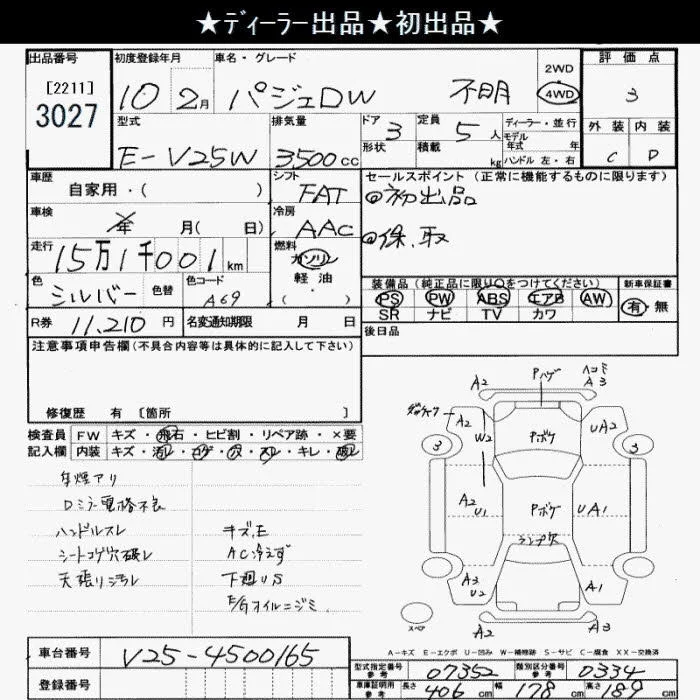 ★ディーラー出品★初出品★
出品番号 初度登録年月 車名・グレード 2WD 4WD 評価点
[2211]
3027
10 2月 パジェロW 不明 3
型式 排気量 ドア 3 定員 5人 ディーラー・並行 外装 内装
形状 積載 kg モデル年式 年
E-V25W 3,500cc ハンドル左・右 C D
車歴 シフト セールスポイント (正常に機能するものに限ります)
自家用・( ) FAT ◎初出品
車検 年 月( 日) 冷房 AAC ◎保、取
走行 15万1千001km 燃料 ガソリン
軽油・( )
色 シルバー 色替 色コード A69
装備品 (純正品に限り○をつけてください) 新車保証書
PS PW ABS エアB AW 有・無
SR ナビ TV カワ
R券 11,210円 名変通知期限 月 日 後日品
注意事項申告欄 (不具合内容等は具体的に記入して下さい)
修復歴 有 [箇所 ]
検査員 FW キズ・飛石・ヒビ割・リペア跡・×要
記入欄 内装 キズ・汚レ・コゲ・穴・スレ・キレ・破レ
Dミラー電格不良
ハンドルスレ キズ、E
シートコゲ穴破レ AC冷えず
天張リ汚レ 下廻りS
E/Gオイルニジミ
A2 Pハゲ A3
A2 W2 Pボケ UA2
3 3
A2 U1 Pボケ UA1
ランプ穴
A3 U2 A1
スペア A2 A3
A-キズ E-エクボ U-凹み W-補修跡 S-サビ C-腐食 XX-交換済
車台番号 V25-4500165
型式指定番号 参考 07352 類別区分番号 参考 0334
登録番号 車庫証明用 参考 長さ 406cm 幅 178cm 高さ 189cm